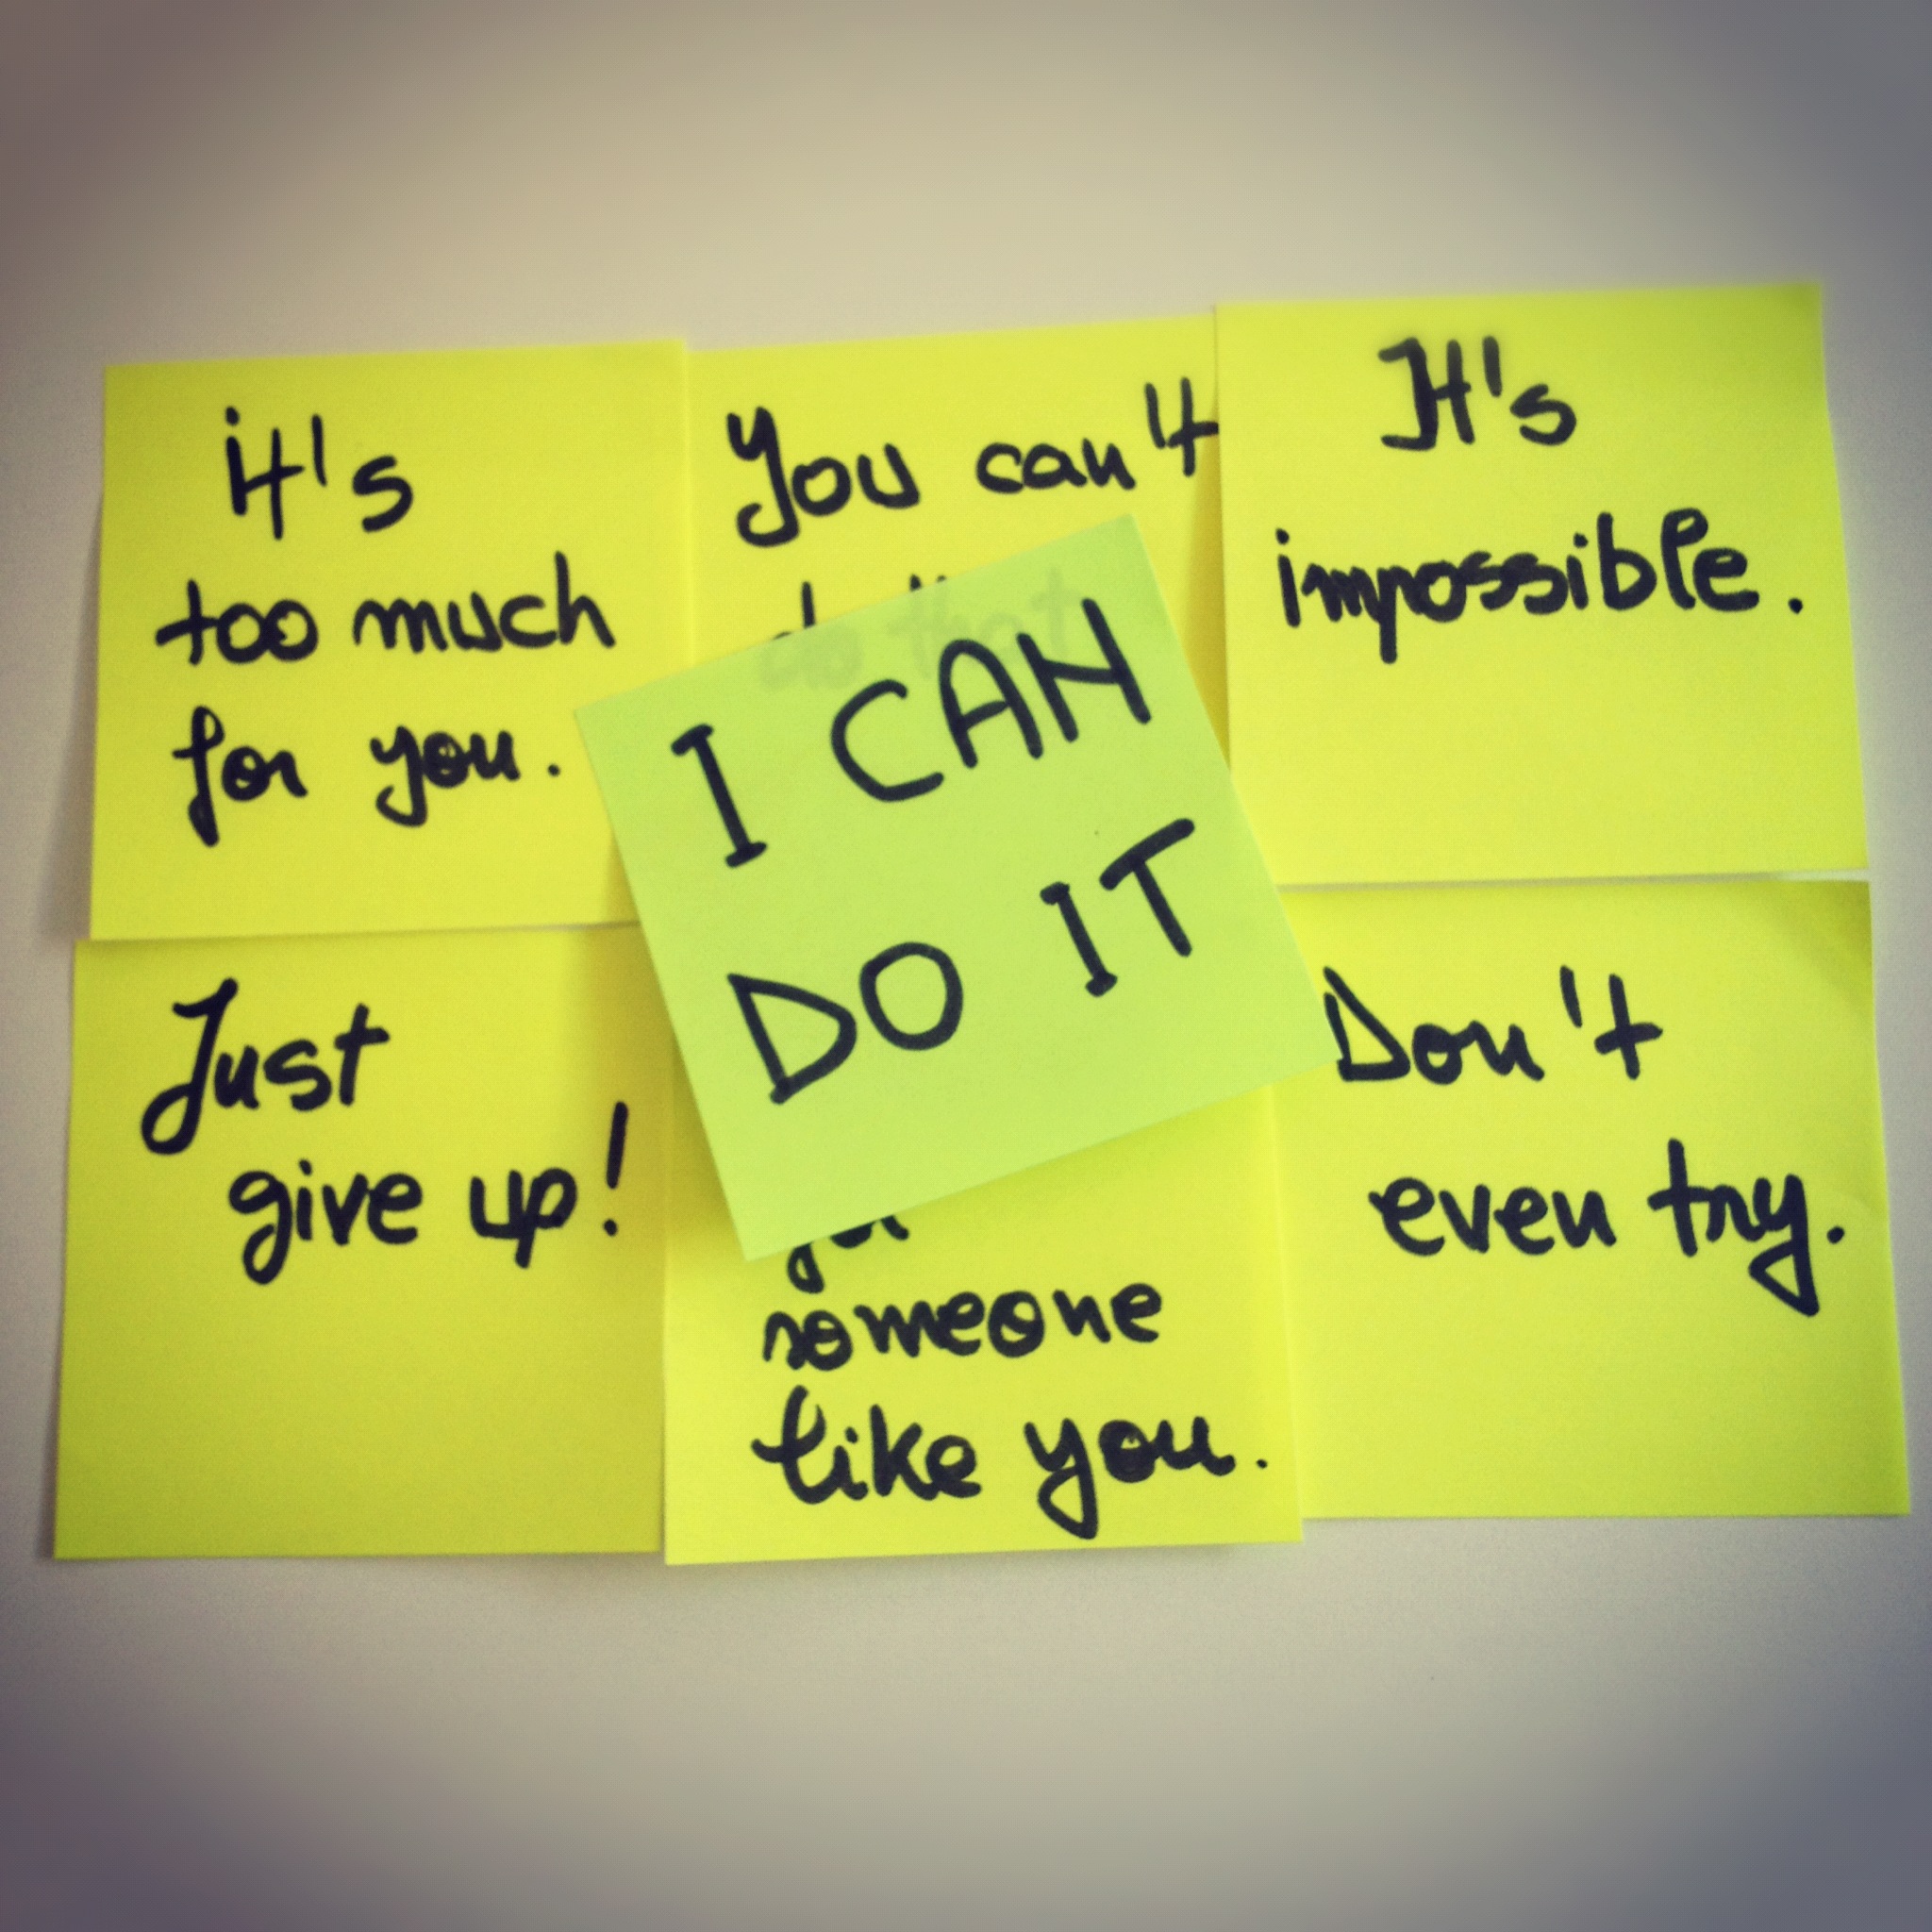 it's
too much
for you.
You can't
do that
It's
impossible.
I CAN
DO IT
Just
give up!
someone
like you.
Don't
even try.